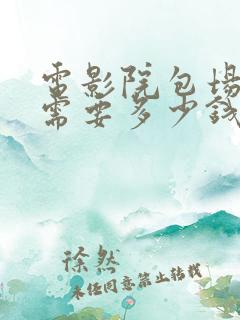 電影院包場
需要多少錢
徐然
未经同意禁止转载